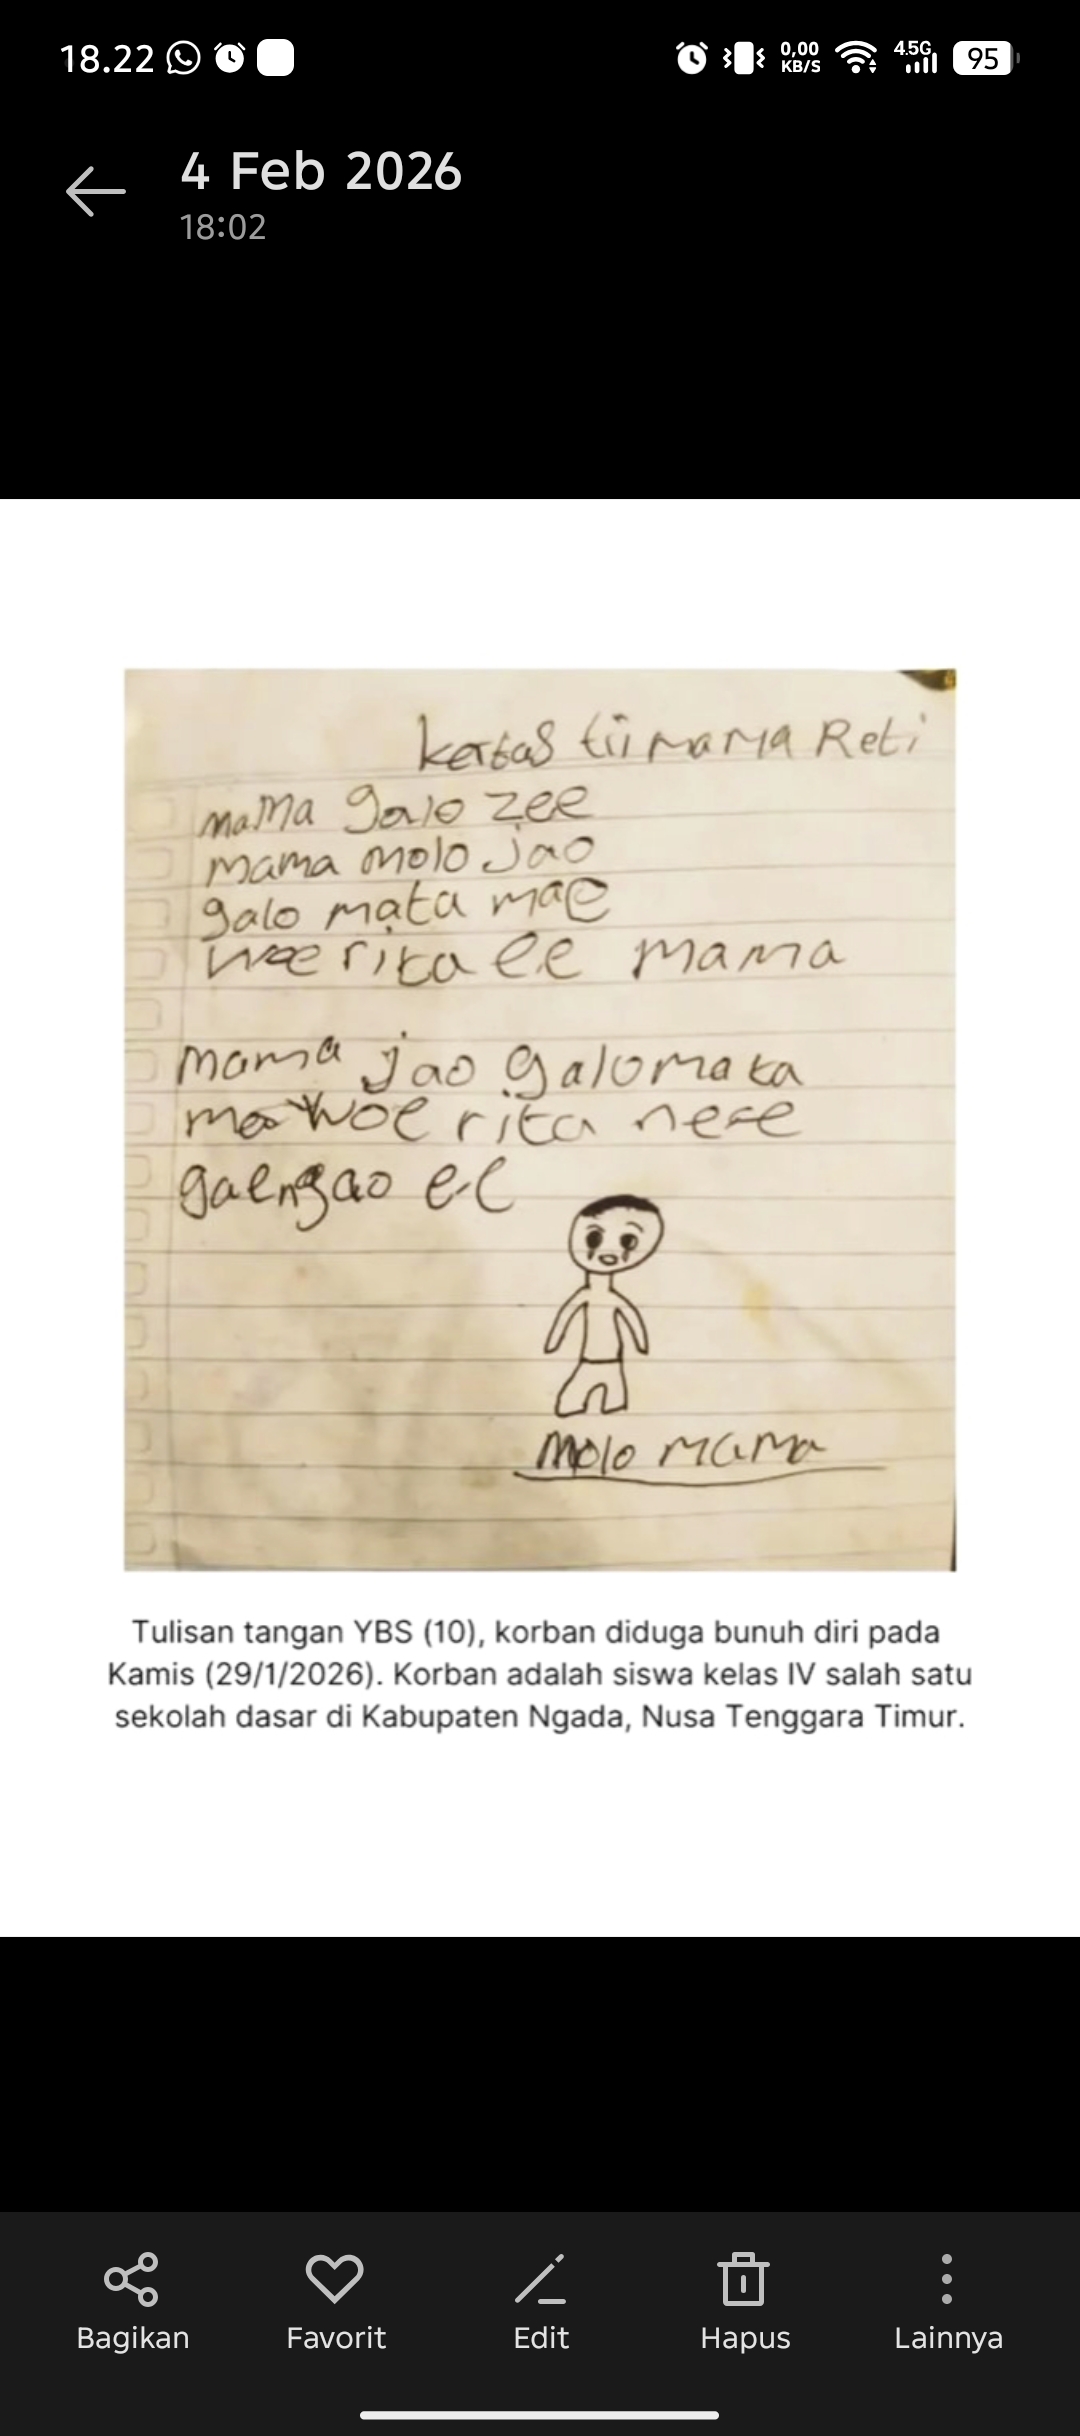 18.22
0,00
KB/S
4.5G
95
4 Feb 2026
18:02
kertas tii mama Reti
mama galo zee
mama molo jao
galo mata mae
woe rita ee mama
mama jao galo mata
mae woe rita nee
gae ngao ee
molo mama
Tulisan tangan YBS (10), korban diduga bunuh diri pada
Kamis (29/1/2026). Korban adalah siswa kelas IV salah satu
sekolah dasar di Kabupaten Ngada, Nusa Tenggara Timur.
Bagikan
Favorit
Edit
Hapus
Lainnya